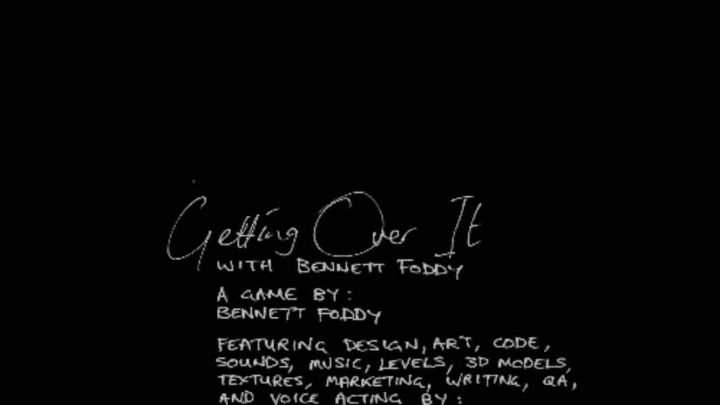 Getting Over It
WITH BENNETT FODDY
A GAME BY:
BENNETT FODDY
FEATURING DESIGN, ART, CODE,
SOUNDS, MUSIC, LEVELS, 3D MODELS,
TEXTURES, MARKETING, WRITING, QA,
AND VOICE ACTING BY: